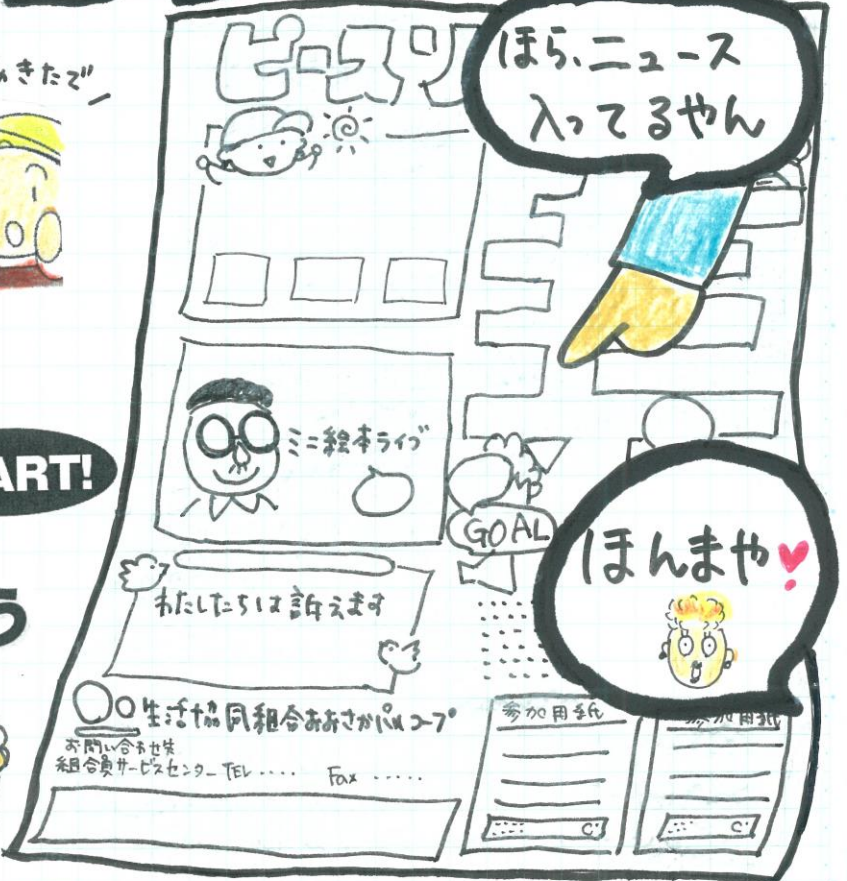 きたで
ピースリ
ほら、ニュース
入ってるやん
ミニ絵本ライブ
ART!
GOAL
ほんまや
わたしたちは訴えます
う
生活協同組合おおさかパルコープ
お問い合わせ先
組合員サービスセンター TEL ..... Fax .....
参加用紙
参加用紙